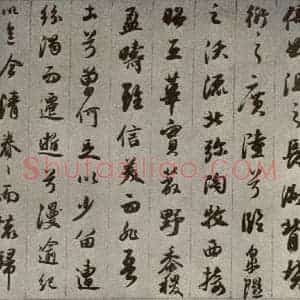 倚曲沮之長洲背墳
衍之廣陸兮臨皋隰
之沃流北弥陶牧西接
昭丘華實蔽野黍稷
盈疇雖信美而非吾
土兮曾何足以少留遭
紛濁而遷逝兮漫逾紀
以迄今情眷眷而懷歸
Shufaziliao.com